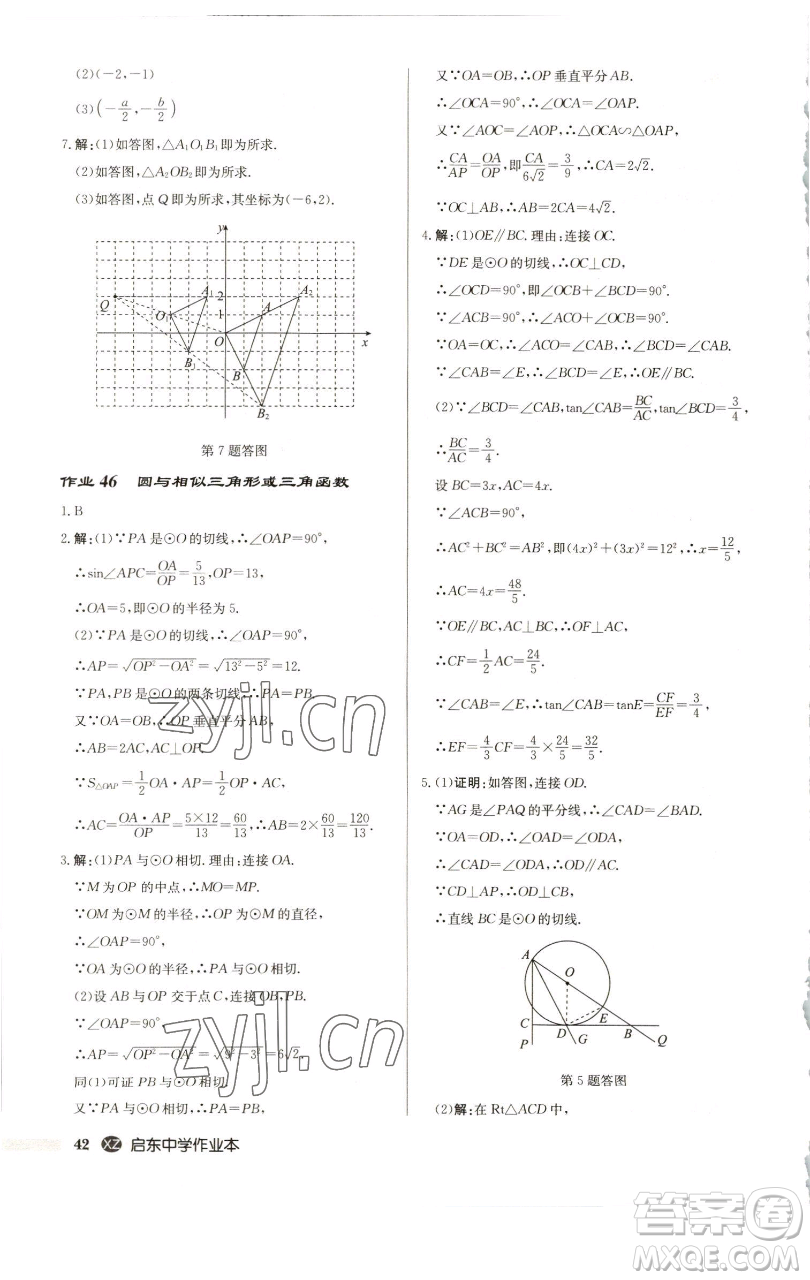 (2)(-2,-1)
(3)(-a/2,-b/2)
7.解:(1)如答图,△A₁O₁B₁即为所求.
(2)如答图,△A₂OB₂即为所求.
(3)如答图,点Q即为所求,其坐标为(-6,2).
y
A₁ 2 A₂
Q
O₁ 1 A
O x
B₁
B
B₂
第7题答图
作业46 圆与相似三角形或三角函数
1.B
2.解:(1)∵PA是⊙O的切线,∴∠OAP=90°,
∴sin∠APC=OA/OP=5/13,OP=13,
∴OA=5,即⊙O的半径为5.
(2)∵PA是⊙O的切线,∴∠OAP=90°,
∴AP=√(OP²-OA²)=√(13²-5²)=12.
∵PA,PB是⊙O的两条切线,∴PA=PB.
又∵OA=OB,∴OP垂直平分AB,
∴AB=2AC,AC⊥OP.
∵S△OAP=1/2OA·AP=1/2OP·AC,
∴AC=OA·AP/OP=5×12/13=60/13,∴AB=2×60/13=120/13.
3.解:(1)PA与⊙O相切.理由:连接OA.
∵M为OP的中点,∴MO=MP.
∵OM为⊙M的半径,∴OP为⊙M的直径,
∴∠OAP=90°,
∵OA为⊙O的半径,∴PA与⊙O相切.
(2)设AB与OP交于点C,连接OB,PB.
∵∠OAP=90°,
∴AP=√(OP²-OA²)=√(9²-3²)=6√2.
同(1)可证PB与⊙O相切.
又∵PA与⊙O相切,∴PA=PB.
42 XZ 启东中学作业本
又∵OA=OB,∴OP垂直平分AB.
∴∠OCA=90°,∴∠OCA=∠OAP.
又∵∠AOC=∠AOP,∴△OCA∽△OAP,
∴CA/AP=OA/OP,即CA/6√2=3/9,∴CA=2√2.
∵OC⊥AB,∴AB=2CA=4√2.
4.解:(1)OE∥BC.理由:连接OC.
∵DE是⊙O的切线,∴OC⊥CD,
∴∠OCD=90°,即∠OCB+∠BCD=90°.
∵∠ACB=90°,∴∠ACO+∠OCB=90°.
∵OA=OC,∴∠ACO=∠CAB=∠BCD.
∵∠CAB=∠E,∴∠BCD=∠E,∴OE∥BC.
(2)∵∠BCD=∠CAB,tan∠CAB=BC/AC,tan∠BCD=3/4,
∴BC/AC=3/4.
设BC=3x,AC=4x.
∵∠ACB=90°,
∴AC²+BC²=AB²,即(4x)²+(3x)²=12²,∴x=12/5,
∴AC=4x=48/5.
∵OE∥BC,AC⊥BC,∴OF⊥AC,
∴CF=1/2AC=24/5.
∵∠CAB=∠E,∴tan∠CAB=tanE=CF/EF=3/4,
∴EF=4/3CF=4/3×24/5=32/5.
5.(1)证明:如答图,连接OD.
∵AG是∠PAQ的平分线,∴∠CAD=∠BAD.
∵OA=OD,∴∠OAD=∠ODA,
∴∠CAD=∠ODA,∴OD∥AC.
∵CD⊥AP,∴OD⊥CD,
∴直线BC是⊙O的切线.
A
O
E
C D B
P G Q
第5题答图
(2)解:在Rt△ACD中,
zyjl.cn
zyjl.cn
答案圈
MXQE.COM